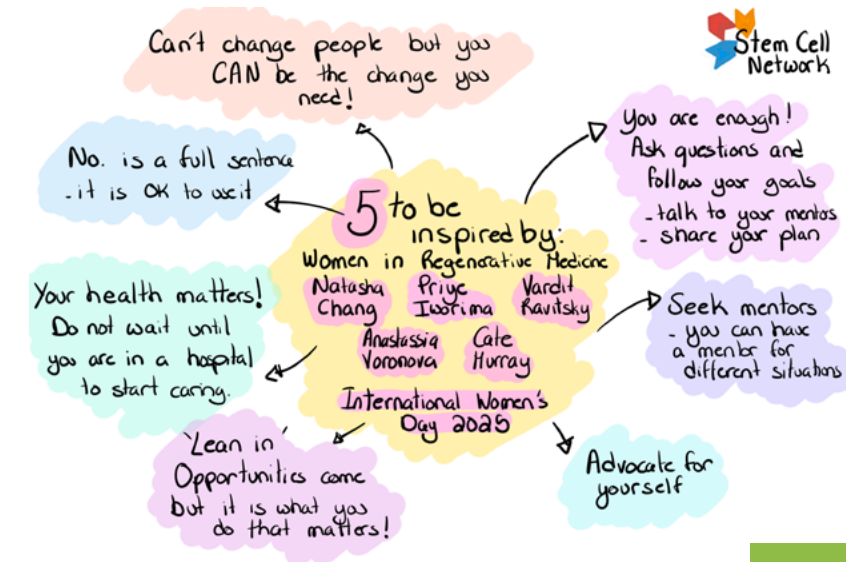 Can't change people but you
CAN be the change you
need!
Stem Cell
Network
No. is a full sentence
- it is OK to use it
You are enough!
Ask questions and
follow your goals
- talk to your mentors
- share your plan
5 to be
inspired by:
Women in Regenerative Medicine
Natasha Chang
Priye Iworima
Vardit Ravitsky
Anastassia Voronova
Cate Murray
International Women's
Day 2025
Your health matters!
Do not wait until
you are in a hospital
to start caring.
Seek mentors
- you can have
a mentor for
different situations
'Lean in'
Opportunities come
but it is what you
do that matters!
Advocate for
yourself